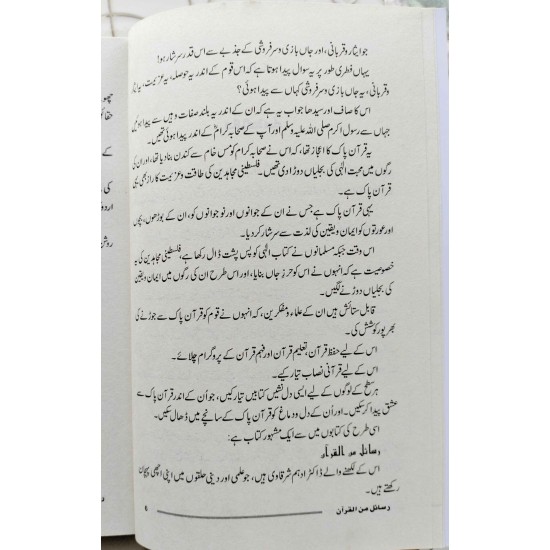 جو ایثار و قربانی، اور جاں بازی و سرفروشی کے جذبے سے اس قدر سرشار ہو!
یہاں فطری طور پر یہ سوال پیدا ہوتا ہے کہ اس قوم کے اندر یہ حوصلہ، یہ عزیمت، یہ ایثار
و قربانی، یہ جاں بازی و سرفروشی کہاں سے پیدا ہوئی؟
اس کا صاف اور سیدھا جواب یہ ہے کہ ان کے اندر یہ بلند صفات وہیں سے پیدا ہوئیں
جہاں سے رسول اکرم صلی اللہ علیہ وسلم اور آپ کے صحابہ کرامؓ کے اندر پیدا ہوئی تھیں۔
یہ قرآن پاک کا اعجاز تھا، کہ اس نے صحابہ کرام کو مس خام سے کندن بنا دیا تھا، اور ان کی
رگوں میں محبت الٰہی کی بجلیاں دوڑا دی تھیں۔ فلسطینی مجاہدین کی طاقت و عزیمت کا راز بھی یہی
قرآن پاک ہے۔
یہی قرآن پاک ہے جس نے ان کے جوانوں اور نوجوانوں کو، ان کے بوڑھوں، بچوں
اور عورتوں کو ایمان و یقین کی لذت سے سرشار کر دیا۔
اس وقت جبکہ مسلمانوں نے کتاب الٰہی کو پس پشت ڈال رکھا ہے، فلسطینی مجاہدین کی یہ
خصوصیت ہے کہ انہوں نے اس کو حرزِ جاں بنایا، اور اس طرح ان کی رگوں میں ایمان و یقین
کی بجلیاں دوڑنے لگیں۔
قابل ستائش ہیں ان کے علماء و مفکرین، کہ انہوں نے قوم کو قرآن پاک سے جوڑنے کی
بھرپور کوشش کی۔
اس کے لیے حفظ قرآن، تعلیم قرآن اور فہم قرآن کے پروگرام چلائے۔
اس کے لیے قرآنی نصاب تیار کیے۔
ہر سطح کے لوگوں کے لیے ایسی دل نشیں کتابیں تیار کیں، جو اُن کے اندر قرآن پاک سے
عشق پیدا کر سکیں۔ اور اُن کے دل و دماغ کو قرآن پاک کے سانچے میں ڈھال سکیں۔
اسی طرح کی کتابوں میں سے ایک مشہور کتاب ہے:
رسائل من القرآن
اس کے لکھنے والے ڈاکٹر ادہم شرقاوی ہیں، جو علمی اور دینی حلقوں میں اپنی اچھی پہچان
رکھتے ہیں۔
رسائل من القرآن